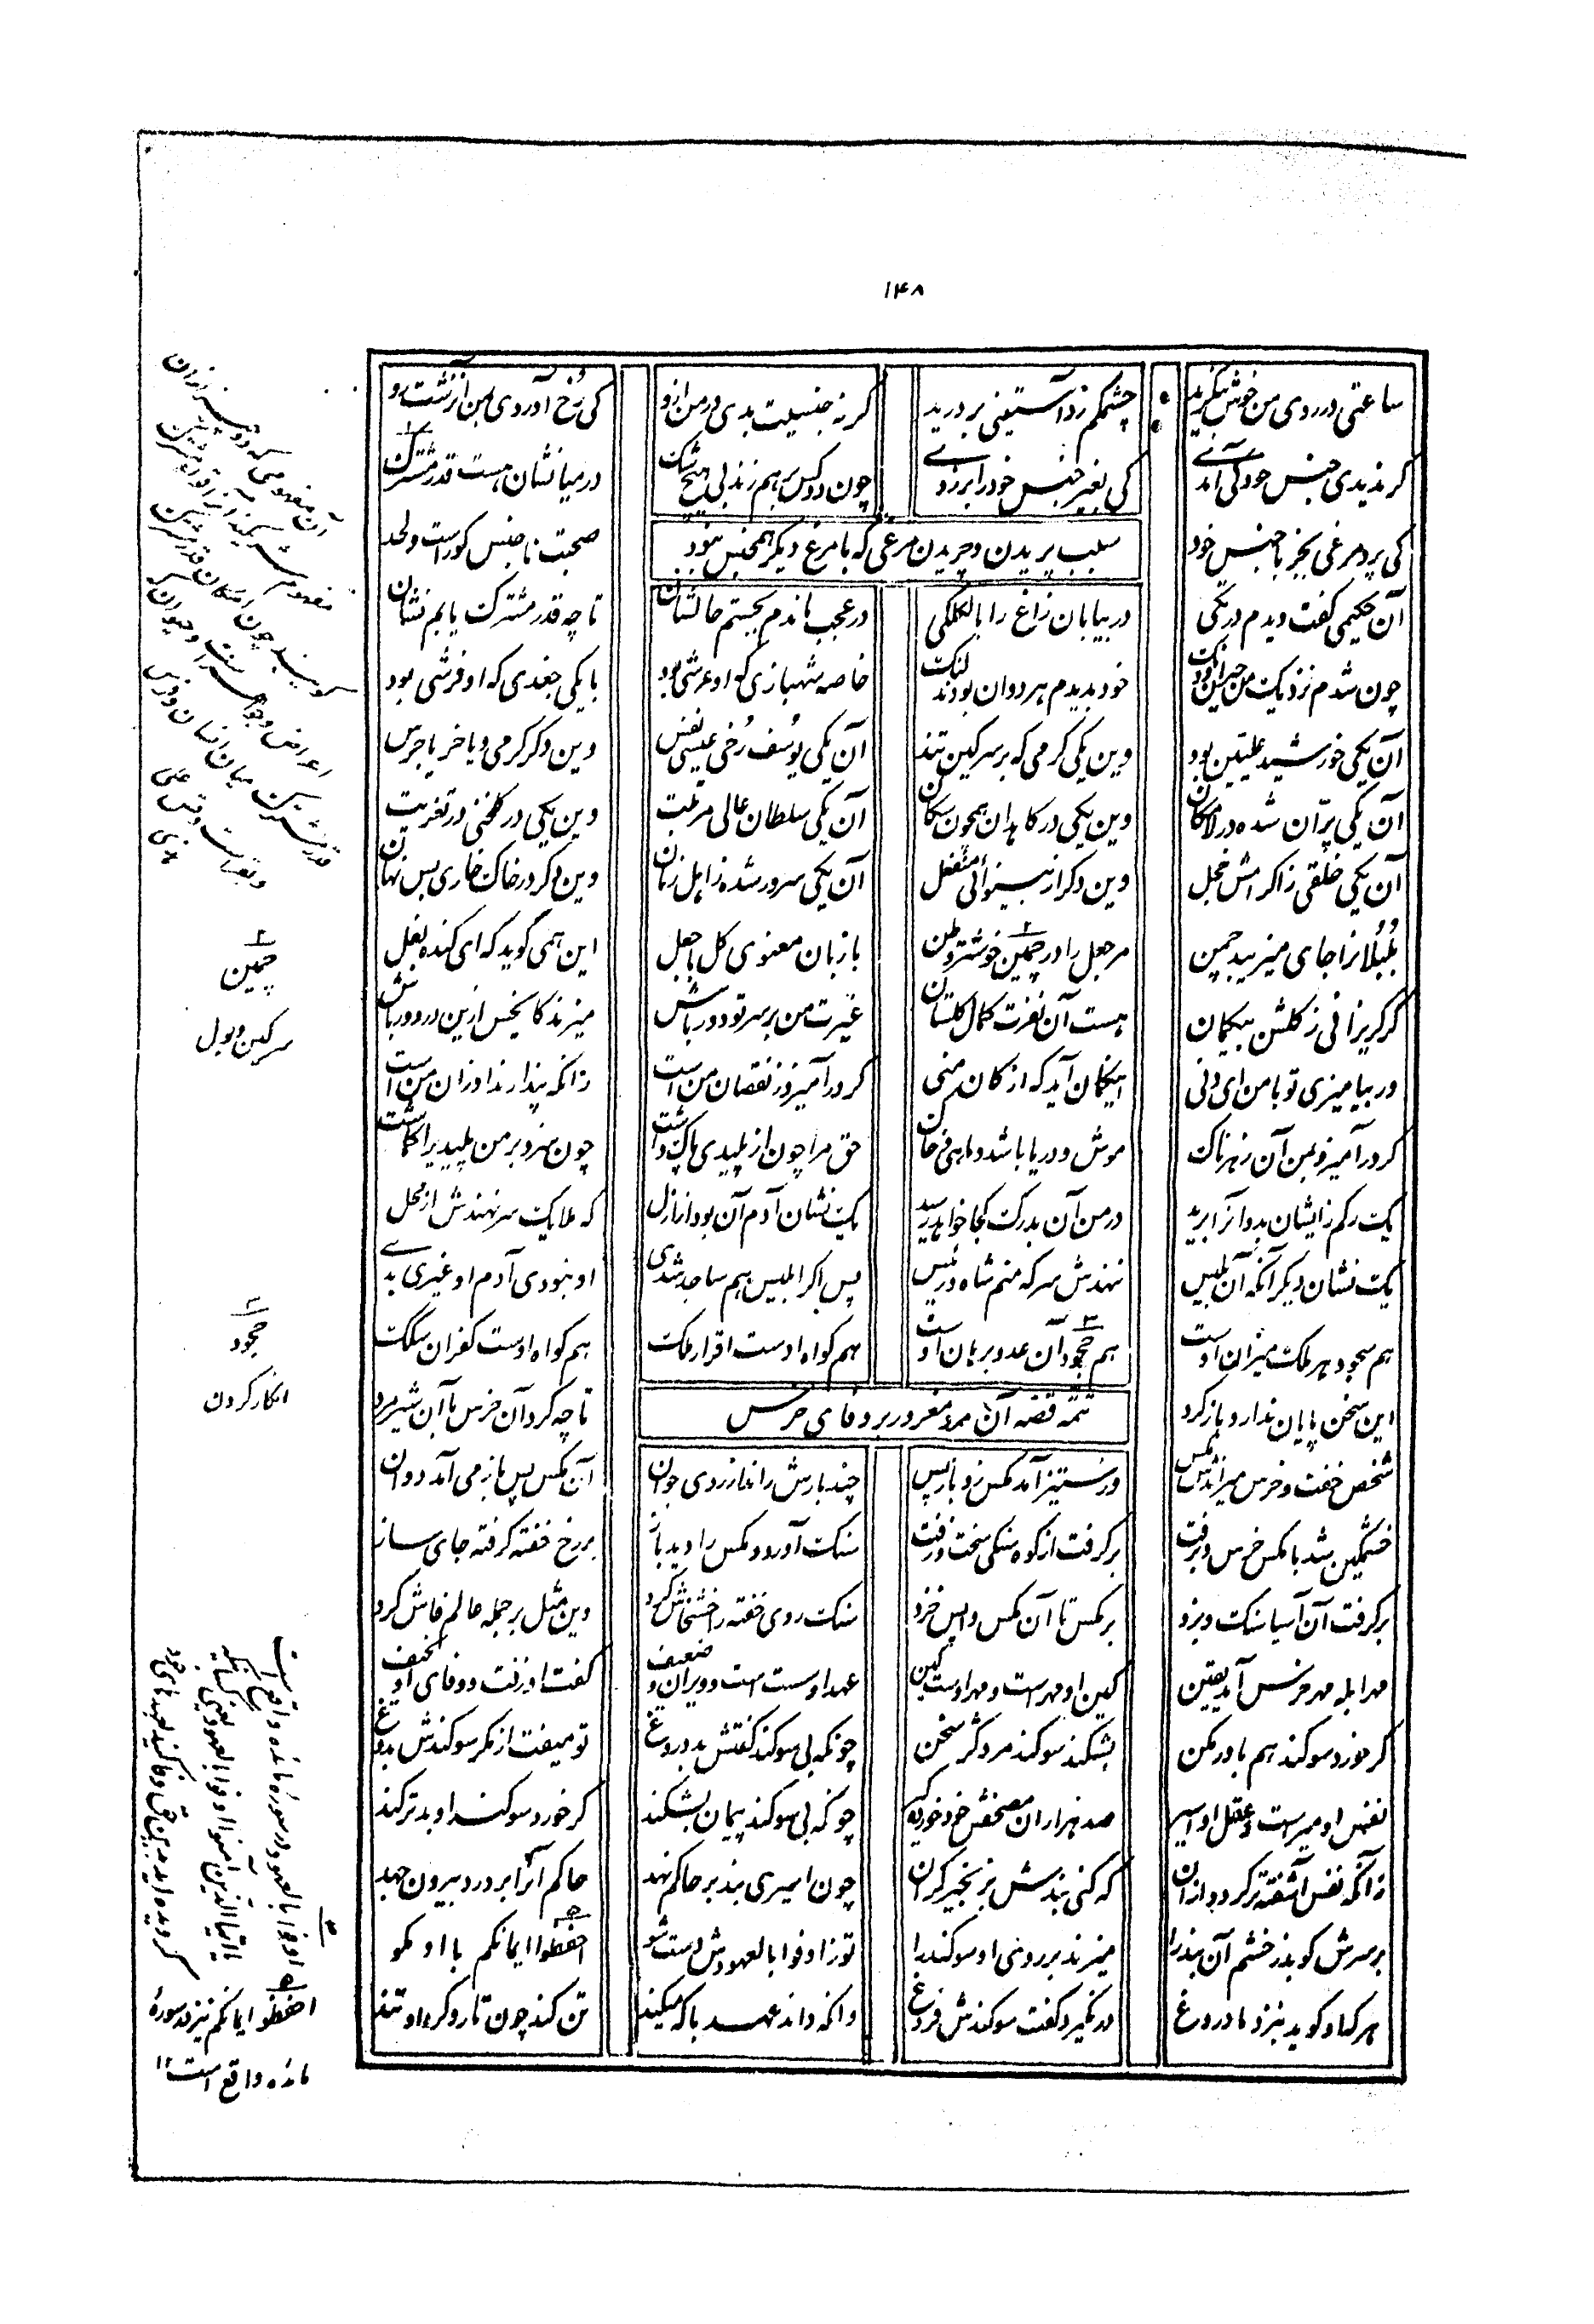 ۱۴۸
ساعتی در روی من خوش بنگرید چشمکم زد آستینی بر درید کر نه جنسیت بدی در من ازو کی رخ آوردی بمن آن زشت رو
کر ندیدی جنس خود کی آمدی کی بغیر جنس خود را بر زدی چون دو کس بر هم زند بی هیچ شک در میانشان هست قدر مشترک
کی پرد مرغی بجز با جنس خود صحبت ناجنس کورست و لحد
سبب پریدن و چریدن مرغی که با مرغ دیگر همجنس نبود
آن حکیمی کفت دیدم در تکی در بیابان زاغ را با لکلکی در عجب ماندم بجستم حالشان تا چه قدر مشترک یابم نشان
چون شدم نزدیک من حیران و دنک خود بدیدم هر دوان بودند لنک خاصه شهبازی که او عرشی بود با یکی جغدی که او فرشی بود
آن یکی خورشید علیین بود وین یکی کرمی که بر سرکین تند آن یکی یوسف رخی عیسی نفس وین دکر کرمی و یا خر یا جرس
آن یکی پران شده در لامکان وین یکی در کاهدان همچون سکان آن یکی سلطان عالی مرتبت وین یکی در کلخنی در تعزیت
آن یکی خلقی ز اکرامش خجل وین دکر از بینوائی منفعل آن یکی سرور شده ز اهل زمان وین دکر در خاک خواری بس نهان
بلبلانرا جای میزیبد چمن مر جعل را در چمین خوشتر وطن با زبان معنوی کل با جعل این همی گوید که ای کنده بغل
کر کریزانی ز کلشن بیکمان هست آن نفرت کمال کلستان غیرت من بر سر تو دورباش میزند کای خس ازین در دور باش
ور بیامیزی تو با من ای دنی این کمان آید که از کان منی کر در آمیزد ز نقصان منست زانکه پندارند او زان منست
کر در آمیزد بمن آن زهرناک موش و دریا باشد و ماهی و خاک حق مرا چون از پلیدی پاک داشت چون سزد بر من پلیدیرا کماشت
یک رکم زایشان بد و آنرا برید در من آن بدرک کجا خواهد رسید یک نشان آدم آن بود از ازل که ملایک سر نهندش از محل
یک نشان دیکر آنکه آن بلیس ننهدش سر که منم شاه و رئیس پس اکر ابلیس هم ساجد شدی او نبودی آدم او غیری بدی
هم سجود هر ملک میزان اوست هم جحود آن عدو برهان اوست هم کواه اوست اقرار ملک هم کواه اوست کفران سکک
این سخن پایان ندارد باز کرد تا چه کرد آن خرس با آن شیر مرد
تتمه قصه آن مرد مغرور بر وفای خرس
شخص خفت و خرس میراندش مکس وز ستیز آمد مکس زو باز پس چند بارش راند از روی جوان آن مکس پس باز می آمد دوان
خشمکین شد با مکس خرس و برفت بر کرفت از کوه سنکی سخت زفت سنک آورد و مکس را دید باز بر رخ خفته کرفته جای ساز
بر کرفت آن آسیا سنک و بزد بر مکس تا آن مکس واپس خزد سنک روی خفته را خشخاش کرد وین مثل بر جمله عالم فاش کرد
مهر ابله مهر خرس آمد یقین کین او مهرست و مهر اوست کین عهد او سست است و ویران و ضعیف کفت او زفت و وفای او نحیف
کر خورد سوکند هم باور مکن بشکند سوکند مرد کژ سخن چونکه بی سوکند کفتش بد دروغ تو میفت از مکر سوکندش بدوغ
نفس او میرست و عقل او اسیر صد هزاران مصحفش خود خورده کیر چونکه بی سوکند پیمان بشکند کر خورد سوکند او بدتر کند
زانکه نفس آشفته تر کردد از آن که کنی بندش بزنجیر کران چون اسیری بند بر حاکم نهد حاکم آنرا بر درد بیرون جهد
بر سرش کوبد ز خشم آن بند را میزند بر روی او سوکند را تو ز اوفوا بالعهودش دست شو احفظوا ایمانکم با او مکو
در نکیرد کفت سوکندش فروغ وانکه داند عهد با که میکند تن کند چون تار و کرد او تند
۲
چمین
سرکین و بول
۳
جحود
انکار کردن
۴
اوفوا بالعهود در سوره مائده واقع است
یا ایها الذین آمنوا اوفوا بالعهود یعنی
۵
احفظوا ایمانکم نیز در سوره
مائده واقع است ۱۲